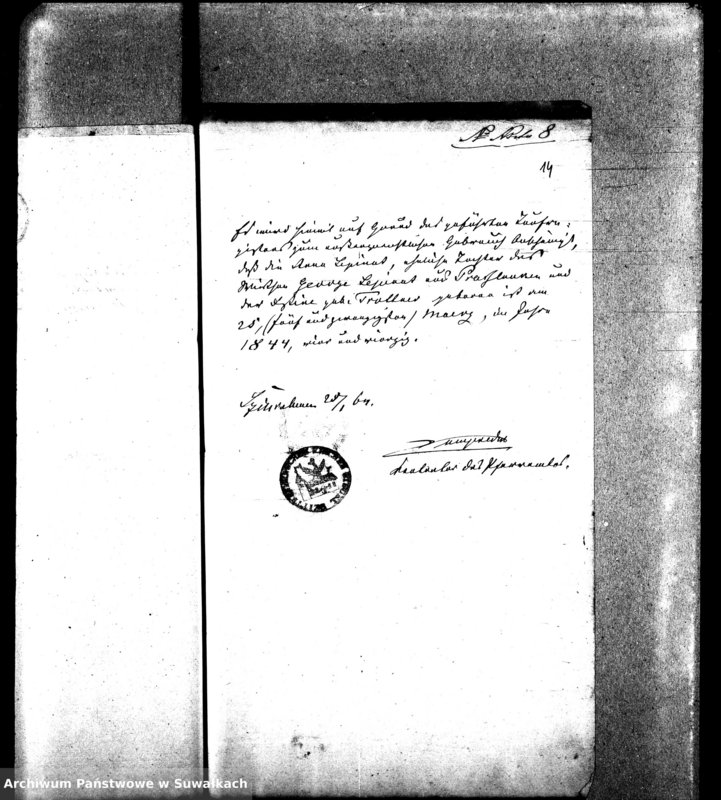 No 8
14
Es wird hiermit auf Grund des geführten Taufre-
gisters zum außergerichtlichen Gebrauch bescheinigt,
daß die Anna Lepinat, eheliche Tochter des
Wirthen George Lepinat aus und
der geb. Trottner geboren ist am
25, (fünf und zwanzigsten) Maerz, im Jahre
1844, vier und vierzig.
28/1 64.
des Pfarramtes.
Archiwum Państwowe w Suwałkach